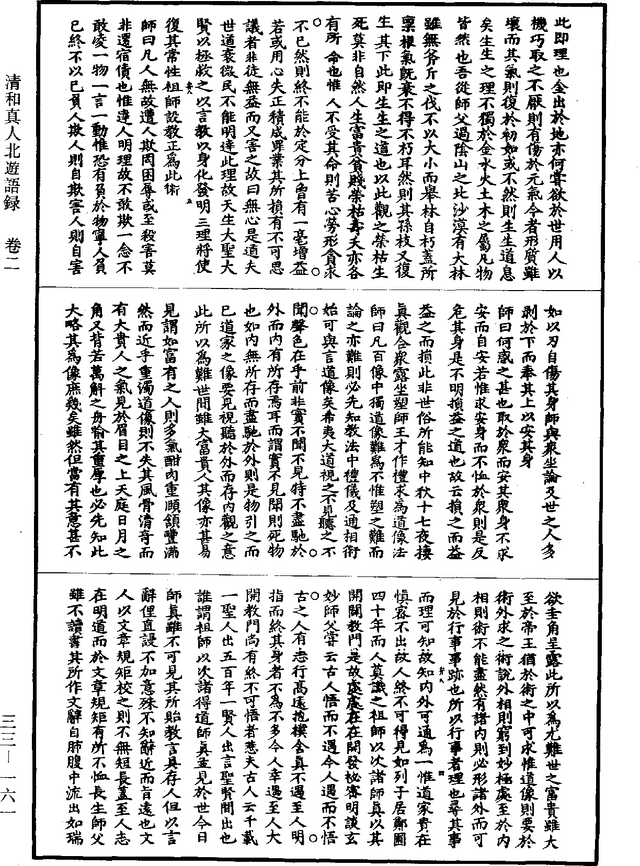 此即理也金出於地亦何嘗欲於世用人以
機巧取之不厭則有傷於元氣令者形質雖
壞而其氣則復於初如或不然則生生道息
矣生生之理不獨於金水火土木之屬凡物
皆然也吾從師父過陰山之北沙漠有大林
雖無斧斤之伐不以大小而舉林自朽蓋所
稟權氣既衰不得不朽耳然則其孫枝又復
生其下此即生生之道也以此觀之榮枯生
死莫非自然人生富貴貧賤榮枯壽夭亦各
有所命也惟人不受其命則苦心勞形貪求
不已然則終不能於定分上曾有一毫增益
若或用心失正積成罪業其所損有不可思
議者非徒無益而又害之故曰無心是道夫
世道衰微民不能明達此理故天生大聖大
賢以極救之以言教以身化發明三理將使
復其常性祖師設教正為此術
師曰凡人無故遭人欺罔困辱或至殺害莫
非還宿債也惟達人明理故不敢欺一念不
敢凌一物一言一動惟恐有負於物寧人負
己終不以己負人欺人則自欺害人則自害
清和真人北遊語録　卷二
三三—一六一
如以刃自傷其身師與眾坐論及世之人多
剥於下而奉其上以安其身
師曰何惑之甚也取於眾而安其眾身不求
安而自安若惟求安身而不恤於眾則是反
危其身是不明損益之道也故云損之而益
益之而損此非世俗所能知中秋十七夜棲
真觀合眾露坐塑師王才作禮求為道像法
師曰凡百像中獨道像難為不惟塑之難而
論之亦難則必先知教法中禮儀及通相術
始可與言道像矣希夷大道視之不見聽之不
聞聲色在乎前非實不聞不見特不盡馳於
外而內有所存焉耳而謂實不見聞則死物
也如內無所存而盡馳於外則是物引之而
已道家之像要見視聽於外而存內觀之意
此所以為難世間雖大富貴人其像亦甚易
見謂如富有之人則多氣酣肉重頤頷豐滿
然而近乎重濁道像則不失其風骨清奇而
有大貴人之氣見於眉目之上天庭日月之
角又背若萬斛之舟喻其重厚也必先知此
大略其為像庶幾矣雖然但當有其意甚不
欲圭角呈露此所以為尤難世之富貴雖大
至於帝王猶於術之中可求惟道像則要於
術外求之術說外相則窮到妙極處至於內
相則術不能盡然有諸內則必形諸外而可
見於行事事跡也所以行事者理也尋其事
而理可知故知內外可通為一惟道家貴在
慎密不出故人終不可得見如列子居鄭圃
四十年而人莫識之祖師以次諸師真以其
開闡教門是故處處在在開發秘密明談玄
妙師父嘗云古人悟而不遇今人遇而不悟
古之人有志行高遠抱樸含真不遇至人明
指而終其身者不為不多今人幸遇至人大
開教門尚有終不可悟者悲夫古人云千載
一聖人出五百年一賢人出言聖賢間出也
誰謂祖師以次諸得道師真並見於世今日
師真雖不可見其所貽教言具存人但以言
辭俚直謾不加意殊不知辭近而旨遠也文
人以文章規矩校之則不無短長蓋至人志
在明道而於文章規矩有所不恤長生師父
雖不讀書其所作文辭自肺腹中流出如瑞